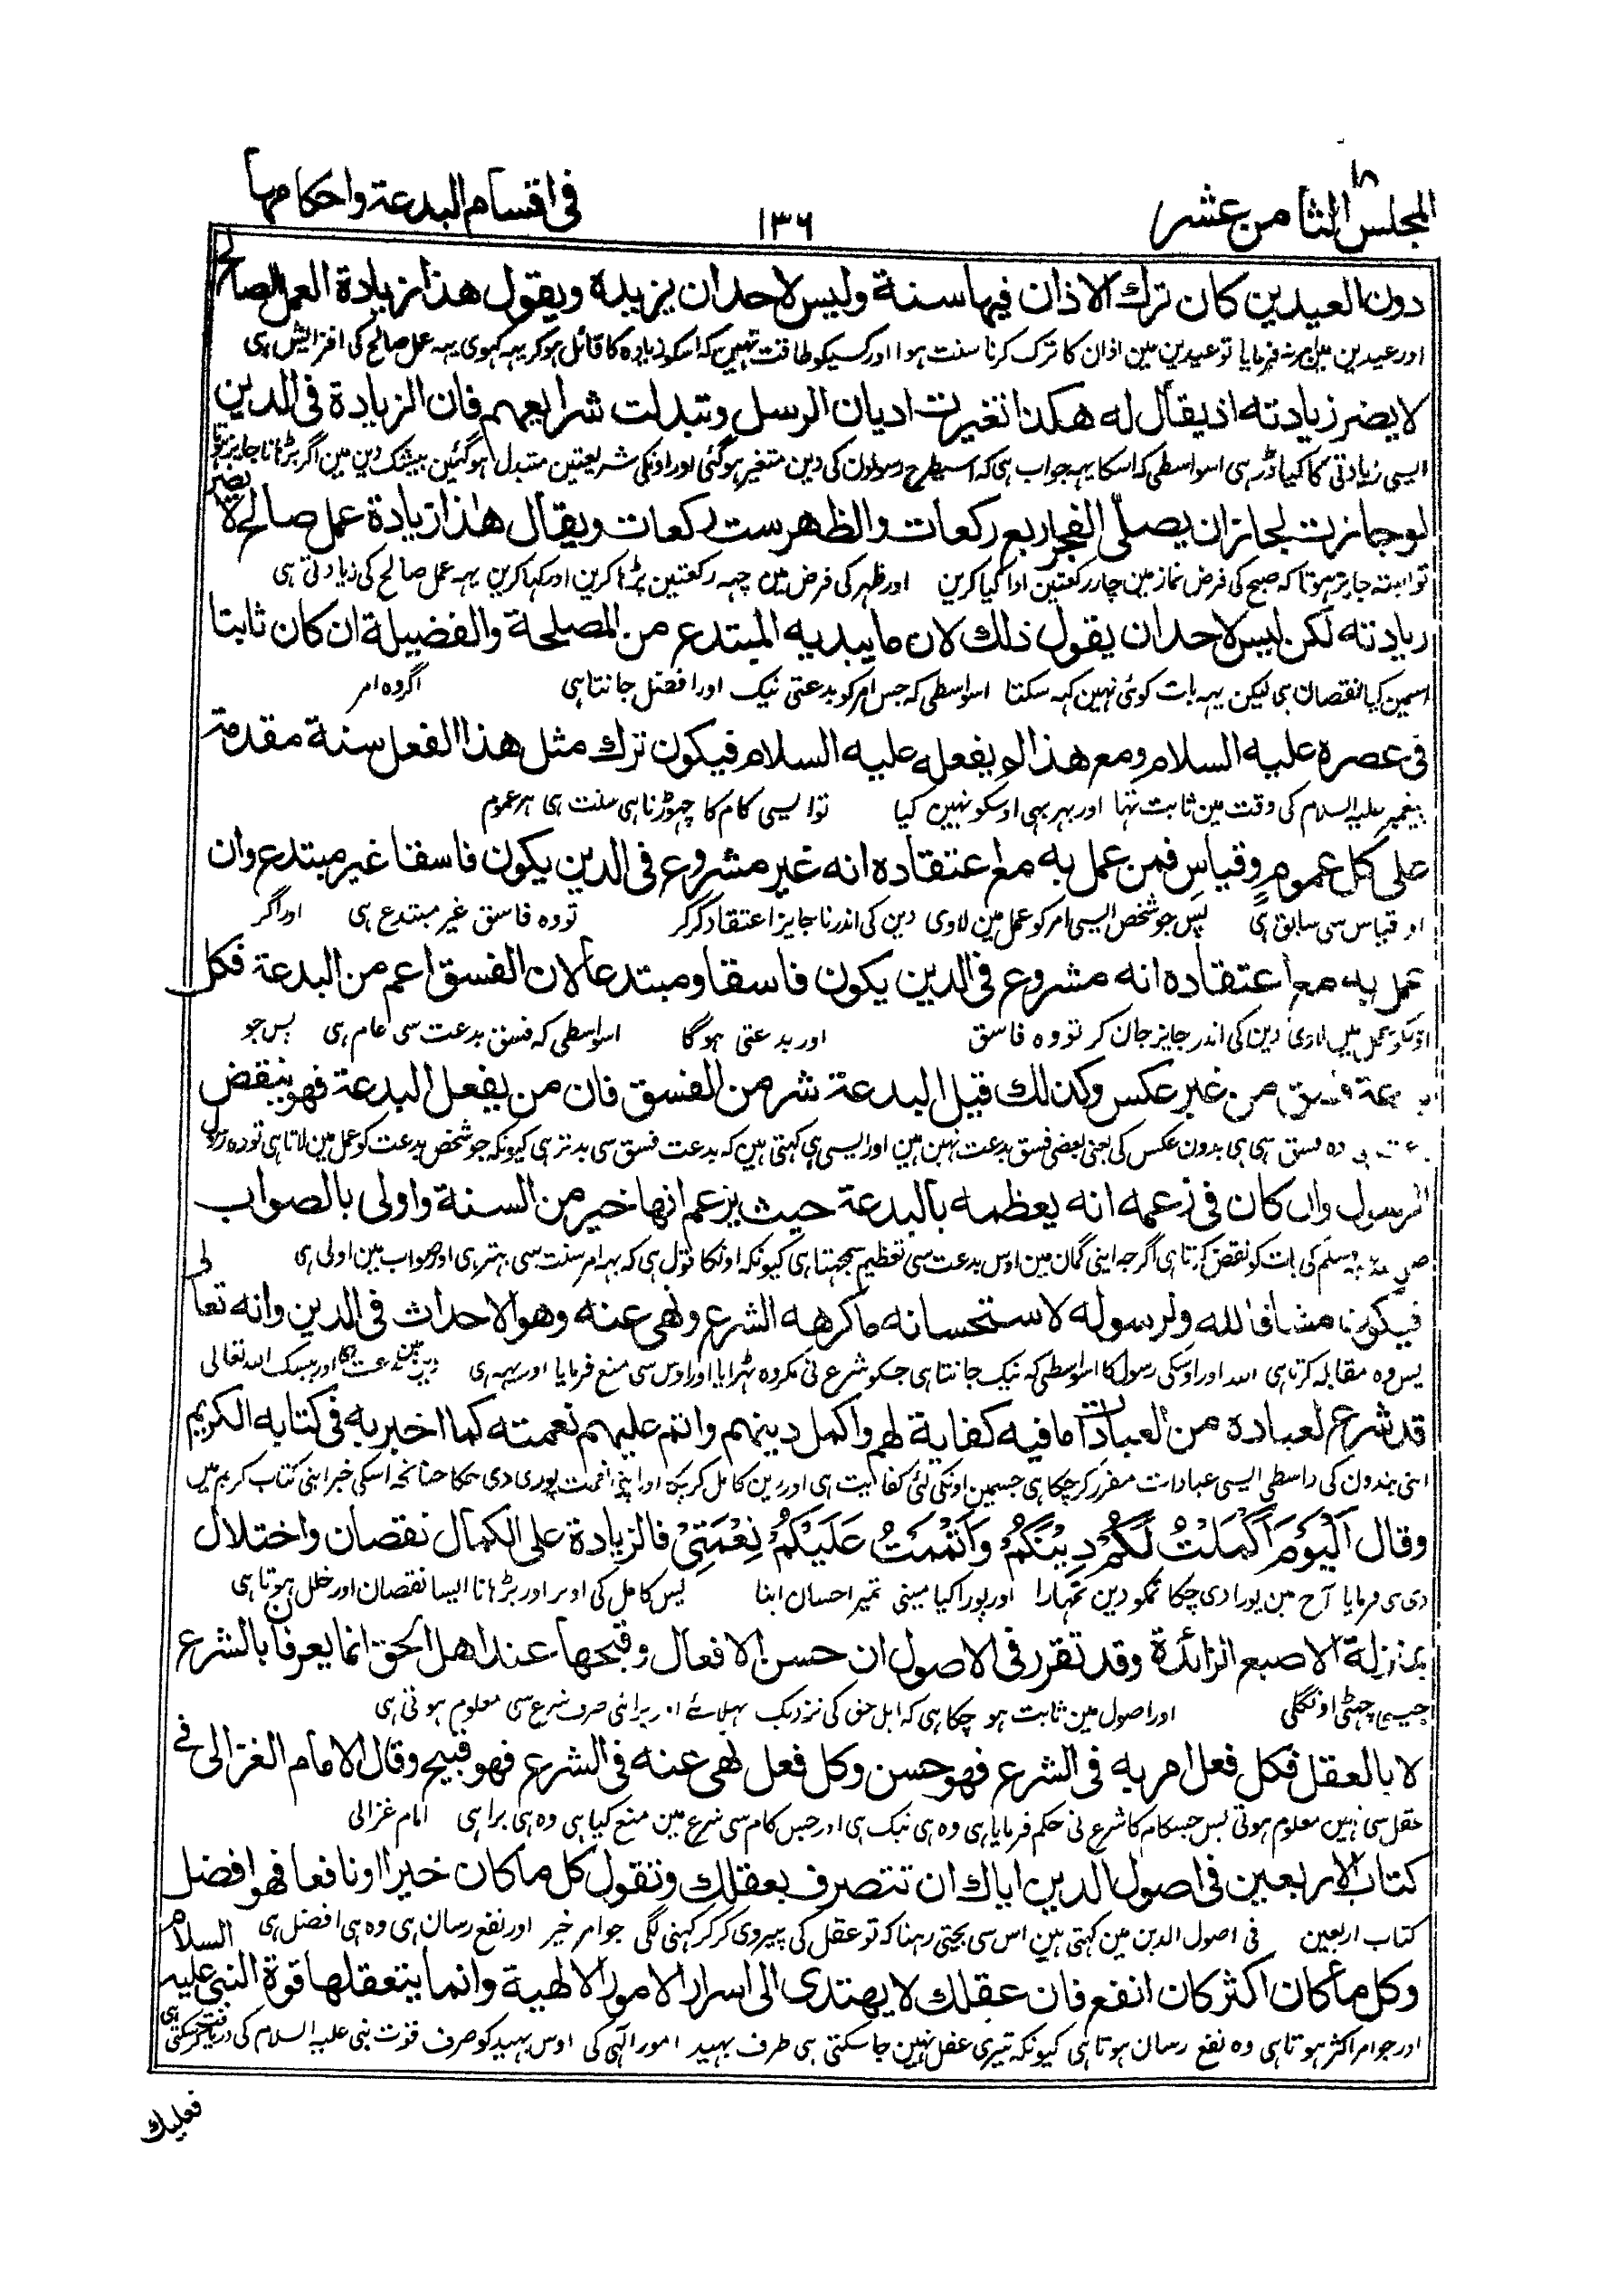 المجلس الثامن عشر ١٨
١٣٦
فی اقسام البدعة واحکامها
دون العیدین کان ترك الاذان فیها سنة ولیس لاحد ان یزیده ویقول هذا زیادة العمل الصالح
اور عیدین مین امر نہ فرمایا تو عیدین مین اذان کا ترک کرنا سنت ہوا اور کسیکو طاقت نہین کہ اسکو زیادہ کا قائل ہو کر یہہ کہوی یہہ عمل صالح کی افزایش ہی
لا یضر زیادته اذ یقال له هکذا تغیرت ادیان الرسل وتبدلت شرایعهم فان الزیادة فی الدین
ایسی زیادتی کا کیا ڈر ہی اسواسطی کہ اسکا یہہ جواب ہی کہ اسیطرح رسولون کی دین متغیر ہوگئی اور اونکی شریعتین متبدل ہوگئین بیشک دین مین اگر بڑہانا جایز ہوتا
لو جازت لجاز ان یصلی الفجر اربع رکعات والظهر ست رکعات ویقال هذا زیادة عمل صالح لا یضر
تو البتہ جایز ہوتا کہ صبح کی فرض نماز مین چار رکعتین ادا کیا کرین اور ظہر کی فرض مین چہہ رکعتین پڑہا کرین اور کہا کرین یہہ عمل صالح کی زیادتی ہی
زیادته لکن لیس لاحد ان یقول ذلك لان ما یبدیه المبتدع من المصلحة والفضیلة ان کان ثابتا
اسمین کیا نقصان ہی لیکن یہہ بات کوئی نہین کہہ سکتا اسواسطی کہ جس امر کو بدعتی نیک اور افضل جانتا ہی اگر وہ امر
فی عصره علیه السلام ومع هذا لم یفعله علیه السلام فیکون ترك مثل هذا الفعل سنة مقدمة
پیغمبر علیہ السلام کی وقت مین ثابت تہا اور پہر بہی اوسکو نہین کیا تو ایسی کام کا چہوڑنا ہی سنت ہی ہر عموم
علی کل عموم وقیاس فمن عمل به مع اعتقاده انه غیر مشروع فی الدین یکون فاسقا غیر مبتدع وان
اور قیاس سی سابق ہی پس جو شخص ایسی امر کو عمل مین لاوی دین کی اندر ناجایز اعتقاد کر کر تو وہ فاسق غیر مبتدع ہی اور اگر
عمل به مع اعتقاده انه مشروع فی الدین یکون فاسقا ومبتدعا لان الفسق اعم من البدعة فکل
اوسکو عمل مین لاوی دین کی اندر جایز جان کر تو وہ فاسق اور بدعتی ہوگا اسواسطی کہ فسق بدعت سی عام ہی پس جو
بدعة فسق من غیر عکس وکذلك قیل البدعة شر من الفسق فان من یفعل البدعة فهو ینقض
وہ فسق ہی ہی بدون عکس کی یعنی بعضی فسق بدعت نہین ہین اور ایسی ہی کہتی ہین کہ بدعت فسق سی بدتر ہی کیونکہ جو شخص بدعت کو عمل مین لاتا ہی تو وہ رسول
الرسول وان کان فی زعمه انه یعظمه بالبدعة حیث یزعم انها خیر من السنة واولی بالصواب
وسلم کی بات کو نقض کرتا ہی اگرچہ اپنی گمان مین اوس بدعت سی تعظیم سمجہتا ہی کیونکہ اونکا قول ہی کہ یہہ امر سنت سی بہتر ہی اور صواب مین اولی ہی
فیکون مشاقا لله ولرسوله لاستحسانه ما کرهه الشرع ونهی عنه وهو الاحداث فی الدین وانه تعالی
پس وہ مقابلہ کرتا ہی اللہ اور اوسکی رسول کا اسواسطی کہ نیک جانتا ہی جسکو شرع نی مکروہ ٹہرایا اور اوس سی منع فرمایا اور یہہ ہی دین مین بدعت اور بیشک اللہ تعالی
قد شرع لعباده من العبادات ما فیه کفایة لهم واکمل دینهم واتم علیهم نعمته کما اخبر به فی کتابه الکریم
اپنی بندون کی واسطی ایسی عبادات مقرر کر چکا ہی جسمین اونکی لئی کفایت ہی اور دین کامل کر چکا اور اپنی نعمت پوری دی چکا چنانچہ اسکی خبر اپنی کتاب کریم مین
وقال اَلْیَوْمَ اَکْمَلْتُ لَکُمْ دِیْنَکُمْ وَاَتْمَمْتُ عَلَیْکُمْ نِعْمَتِیْ فالزیادة علی الکمال نقصان واختلال
دی ہی فرمایا آج مین پورا دی چکا تمکو دین تمہارا اور پورا کیا مینی تمپر احسان اپنا پس کامل کی اوپر اور بڑہانا ایسا نقصان اور خلل ہوتا ہی
بمنزلة الاصبع الزائدة وقد تقرر فی الاصول ان حسن الافعال وقبحها عند اهل الحق انما یعرفان بالشرع
جیسی چہٹی اونگلی اور اصول مین ثابت ہو چکا ہی کہ اہل حق کی نزدیک بہلائی اور برائی صرف شرع سی معلوم ہوتی ہی
لا بالعقل فکل فعل امر به فی الشرع فهو حسن وکل فعل نهی عنه فی الشرع فهو قبیح وقال الامام الغزالی فی
عقل سی نہین معلوم ہوتی پس جسکام کا شرع نی حکم فرمایا ہی وہ ہی نیک ہی اور جس کام سی شرع مین منع کیا ہی وہ ہی برا ہی امام غزالی
کتاب الاربعین فی اصول الدین ایاك ان تتصرف بعقلك وتقول کل ما کان خیرا او نافعا فهو افضل
کتاب اربعین فی اصول الدین مین کہتی ہین اس سی بچتی رہنا کہ تو عقل کی پیروی کر کر کہنی لگی جو امر خیر اور نفع رسان ہی وہ ہی افضل ہی
وکل ما کان اکثر کان انفع فان عقلك لا یهتدی الی اسرار الامور الالهیة وانما یتعقلها قوة النبی علیه السلام
اور جو امر اکثر ہوتا ہی وہ نفع رسان ہوتا ہی کیونکہ تیری عقل نہین جا سکتی ہی طرف بہید امور الہی کی اوس بہید کو صرف قوت نبی علیہ السلام کی دریافت کر سکتی ہی
فعلیك